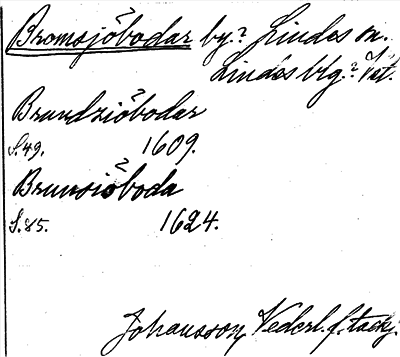 Bromsjöbodar by.? Lindes sn.
Lindes blg.? Vät.
Brundziöbodar
S.49. 1609.
Brunsiöboda
S.85. 1624.
Johansson, Vederl. f. tackj.